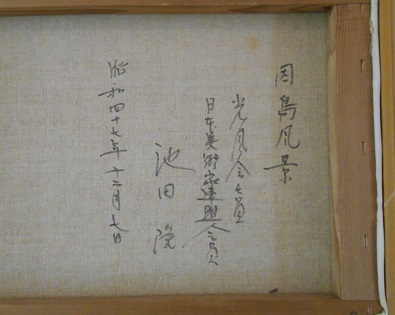 因島風景
光風会会員
日本美術家連盟会員
池田
昭和四十七年十二月七日